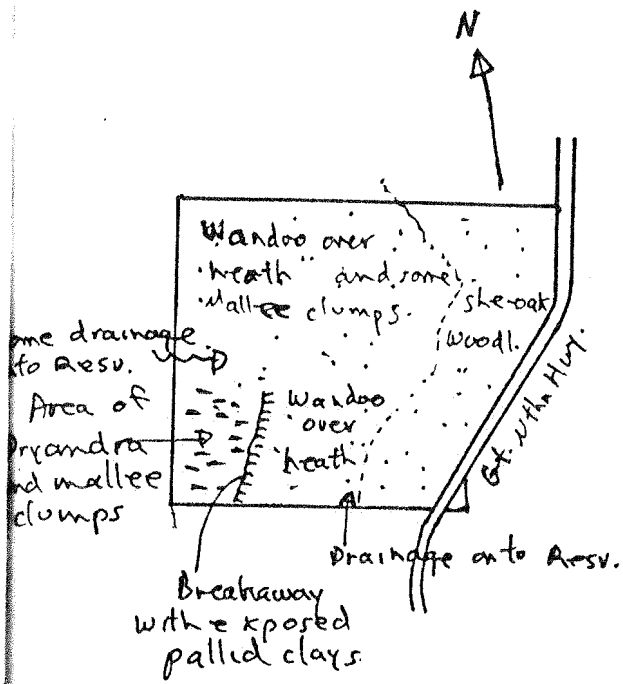 N
Wandoo over
heath and some
Mallee clumps.
she-oak
Woodl.
me drainage
to Resv.
Area of
Dryandra
nd mallee
clumps
Wandoo
over
heath
Gt. Nthn Hwy.
Drainage onto Resv.
Breakaway
with exposed
pallid clays.